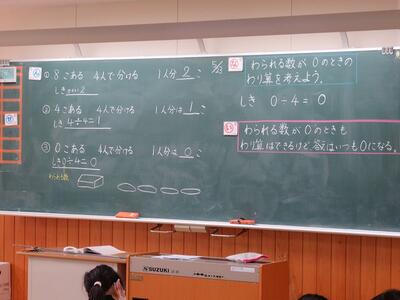 ① 8こある 4人で分ける 1人分 2 こ
しき 8÷4=2
② 4こある 4人で分ける 1人分は 1 こ
しき 4÷4=1
③ 0こある 4人で分ける 1人分は 0 こ
しき 0÷4=0
わられる数
5/23
わられる数が0のときの
わり算を考えよう。
しき 0÷4=0
わられる数が0のときも
わり算はできるけど、答えはいつも0になる。
SUZUKI